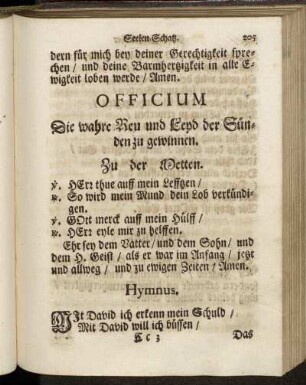 Seelen-Schatz. 205
dern für mich bey deiner Gerechtigkeit spre-
chen / und deine Barmhertzigkeit in alle E-
wigkeit loben werde / Amen.
OFFICIUM
Die wahre Reu und Leyd der Sün-
den zu gewinnen.
Zu der Metten.
℣. HErr thue auff mein Lefftzen /
℟. So wird mein Mund dein Lob verkündi-
gen.
℣. GOtt merck auff mein Hülff /
℟. HErr eyle mir zu helffen.
Ehr sey dem Vatter / und dem Sohn / und
dem H. Geist / als er war im Anfang / jetzt
und allweg / und zu ewigen Zeiten / Amen.
Hymnus.
MIt David ich erkenn mein Schuld /
Mit David will ich büssen /
Das